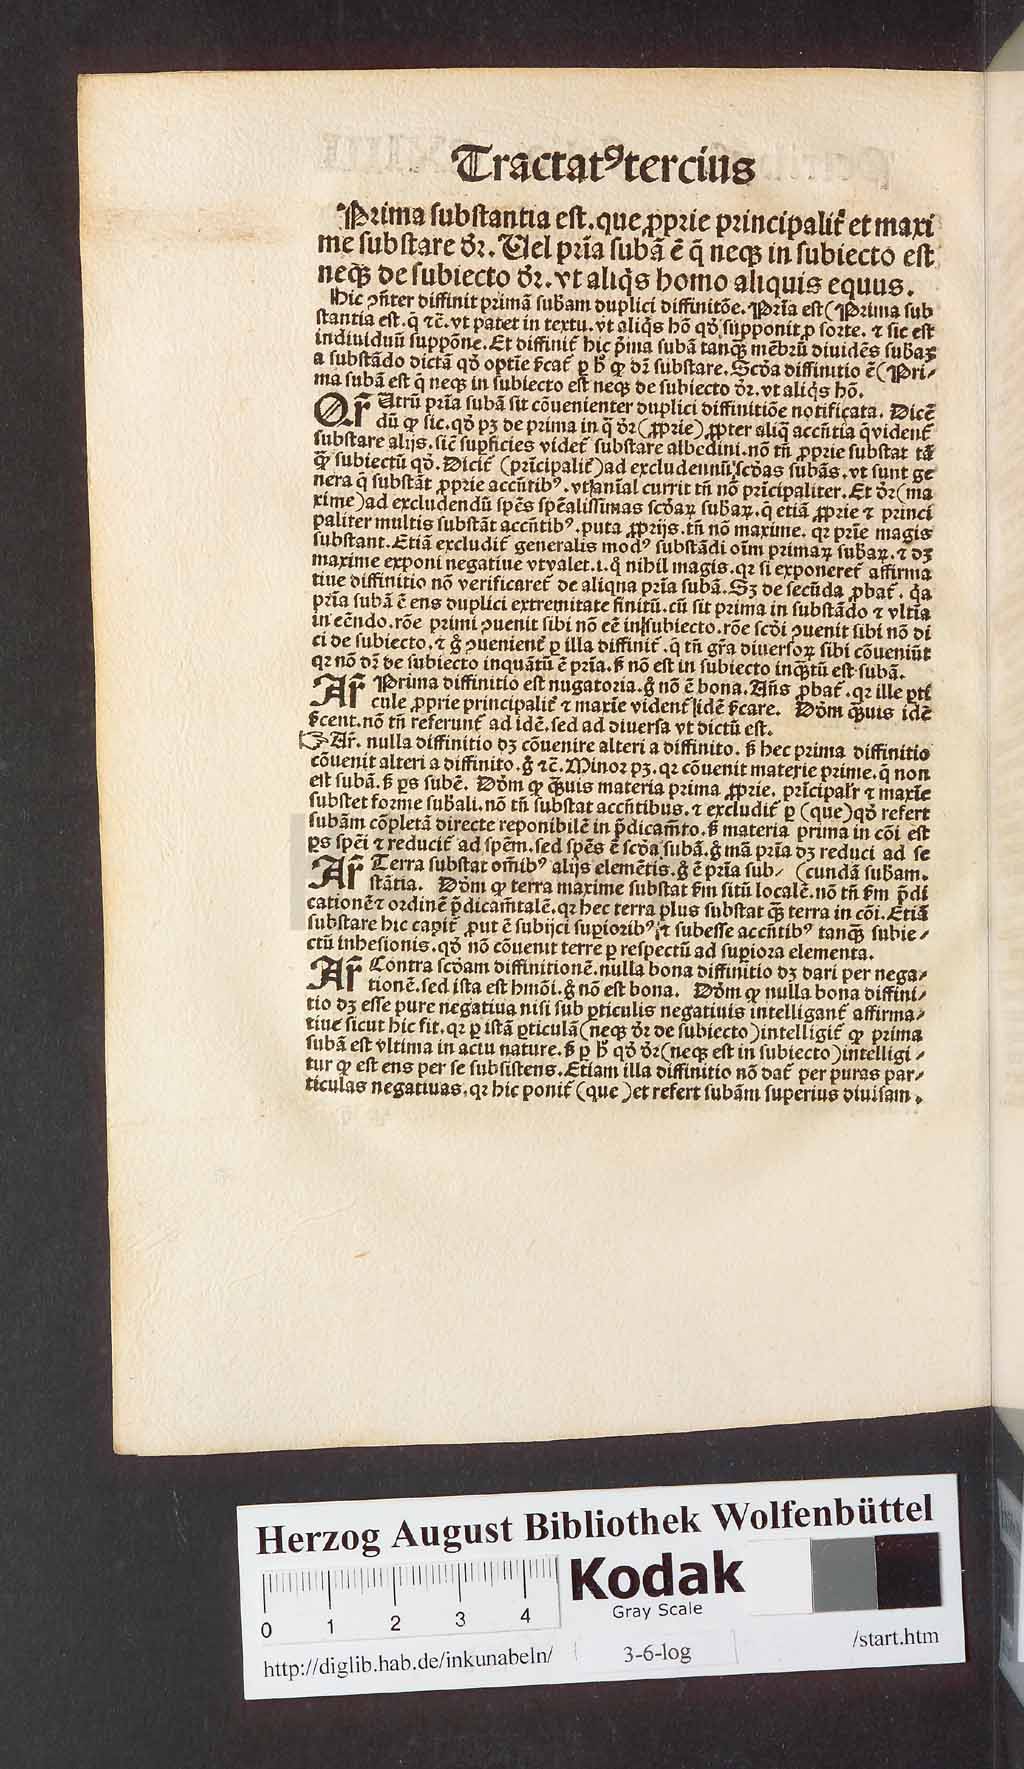 Tractatꝰ tercius
Prima substantia est. que ꝓprie principalit̃ et maxi
me substare dr̃. Uel prĩa subã ẽ q̃ neqꝫ in subiecto est
neqꝫ de subiecto dr̃. vt aliq̃s homo aliquis equus.
Hic ↄñter diffinit primã subam duplici diffinitõe. Prĩa est (Prima sub
stantia est. q̃ ⁊c̃. vt patet in textu. vt aliq̃s hõ qd̃ supponit ꝓ sorte. ⁊ sic est
indiuiduũ suppõne. Et diffinit̃ hic p̃ima subã tanqꝫ mẽbrũ diuidẽs subaꝝ
a substãdo dictã qd̃ optĩe p̃cat̃ ꝑ h̃ ꝙ dr̃ substare. Scd̃a diffinitio ẽ (Pri⸗
ma subã est q̃ neqꝫ in subiecto est neqꝫ de subiecto dr̃. vt aliq̃s hõ.
Qr̃ Utrũ prĩa subã sit cõuenienter duplici diffinitiõe notificata. Dicẽ
dũ ꝙ sic. qd̃ pꝫ de prima in q̃ dr̃ (ꝓprie) ꝓpter aliq̃ accñtia q̃ vident̃
substare alijs. sic̃ suꝑficies videt̃ substare albedini. nõ tñ ꝓprie substat tã
qꝫ subiectũ qd̃. Dicit̃ (prĩcipalit̃) ad excludennũ scd̃as subãs. vt sunt ge
nera q̃ substãt ꝓprie accñtibꝰ. vt anĩal currit tñ nõ prĩcipaliter. Et dr̃ (ma
xime) ad excludendũ spẽs spẽalissimas scd̃aꝝ subaꝝ. q̃ etiã ꝓprie ⁊ princi
paliter multis substãt accñtibꝰ. puta ꝓprijs. tñ nõ maxime. qꝛ prĩe magis
substant. Etiã excludit̃ generalis modꝰ substãdi oĩm primaꝝ subaꝝ. ⁊ dꝫ
maxime exponi negatiue vt valet. i. q̃ nihil magis. qꝛ si exponeret̃ affirma
tiue diffinitio nõ verificaret̃ de aliqua prĩa subã. Sꝫ de secũda ꝓbat̃. q̃a
prĩa subã ẽ ens duplici extremitate finitũ. cũ sit prima in substãdo ⁊ vltĩa
in eẽndo. rõe primi ↄuenit sibi nõ eẽ in subiecto. rõe scd̃i ↄuenit sibi nõ di
ci de subiecto. ⁊ g̃ ↄuenient̃ ꝑ illa diffinit̃. q̃ tñ gr̃a diuersoꝝ sibi cõueniũt
qꝛ nõ dr̃ de subiecto inquãtũ ẽ prĩa. s̃ nõ est in subiecto inqꝫtũ est subã.
Ar̃ Prima diffinitio est nugatoria. g̃ nõ ẽ bona. Añs ꝓbat̃. qꝛ ille ꝑti
cule ꝓprie principalit̃ ⁊ maxĩe vident̃ idẽ p̃care. Dõm qꝫuis idẽ
p̃cent. nõ tñ referunt̃ ad idẽ. sed ad diuersa vt dictũ est.
☞ Ar̃. nulla diffinitio dꝫ cõuenire alteri a diffinito. s̃ hec prima diffinitio
cõuenit alteri a diffinito. g̃ ⁊c̃. Minor pꝫ. qꝛ cõuenit materie prime. q̃ non
est subã. s̃ ꝑs subẽ. Dõm ꝙ qꝫuis materia prima ꝓprie. prĩcipalr̃ ⁊ maxĩe
substet forme subali. nõ tñ substat accñtibus. ⁊ excludit̃ ꝑ (que) qd̃ refert
subãm cõpletã directe reponibilẽ in p̃dicam̃to. s̃ materia prima in cõi est
ꝑs spẽi ⁊ reducit̃ ad spẽm. sed spẽs ẽ scd̃a subã. g̃ mã prĩa dꝫ reduci ad se
Ar̃ Terra substat om̃ibꝰ alijs elemẽtis. g̃ ẽ prĩa sub⸗ (cundã subam.
stãtia. Dõm ꝙ terra maxime substat s̃m sitũ localẽ. nõ tñ s̃m p̃di
cationẽ ⁊ ordinẽ p̃dicam̃talẽ. qꝛ hec terra plus substat qꝫ terra in cõi. Etiã
substare hic capit̃ ꝓut ẽ subijci suꝑioribꝰ ⁊ subesse accñtibꝰ tanqꝫ subie⸗
ctũ inhesionis. qd̃ nõ cõuenit terre ꝑ respectũ ad suꝑiora elementa.
Ar̃ Contra scd̃am diffinitionẽ. nulla bona diffinitio dꝫ dari per nega⸗
tionẽ. sed ista est hmõi. g̃ nõ est bona. Dõm ꝙ nulla bona diffini⸗
tio dꝫ esse pure negatiua nisi sub ꝑticulis negatiuis intelligant̃ affirma⸗
tiue sicut hic fit. qꝛ ꝑ istã ꝑticulã (neqꝫ dr̃ de subiecto) intelligit̃ ꝙ prima
subã est vltima in actu nature. s̃ ꝑ h̃ qd̃ dr̃ (neqꝫ est in subiecto) intelligi⸗
tur ꝙ est ens per se subsistens. Etiam illa diffinitio nõ dat̃ per puras par⸗
ticulas negatiuas. qꝛ hic ponit̃ (que) et refert subãm superius diuisam.
Herzog August Bibliothek Wolfenbüttel
Kodak
Gray Scale
0 1 2 3 4
http://diglib.hab.de/inkunabeln/ 3-6-log /start.htm